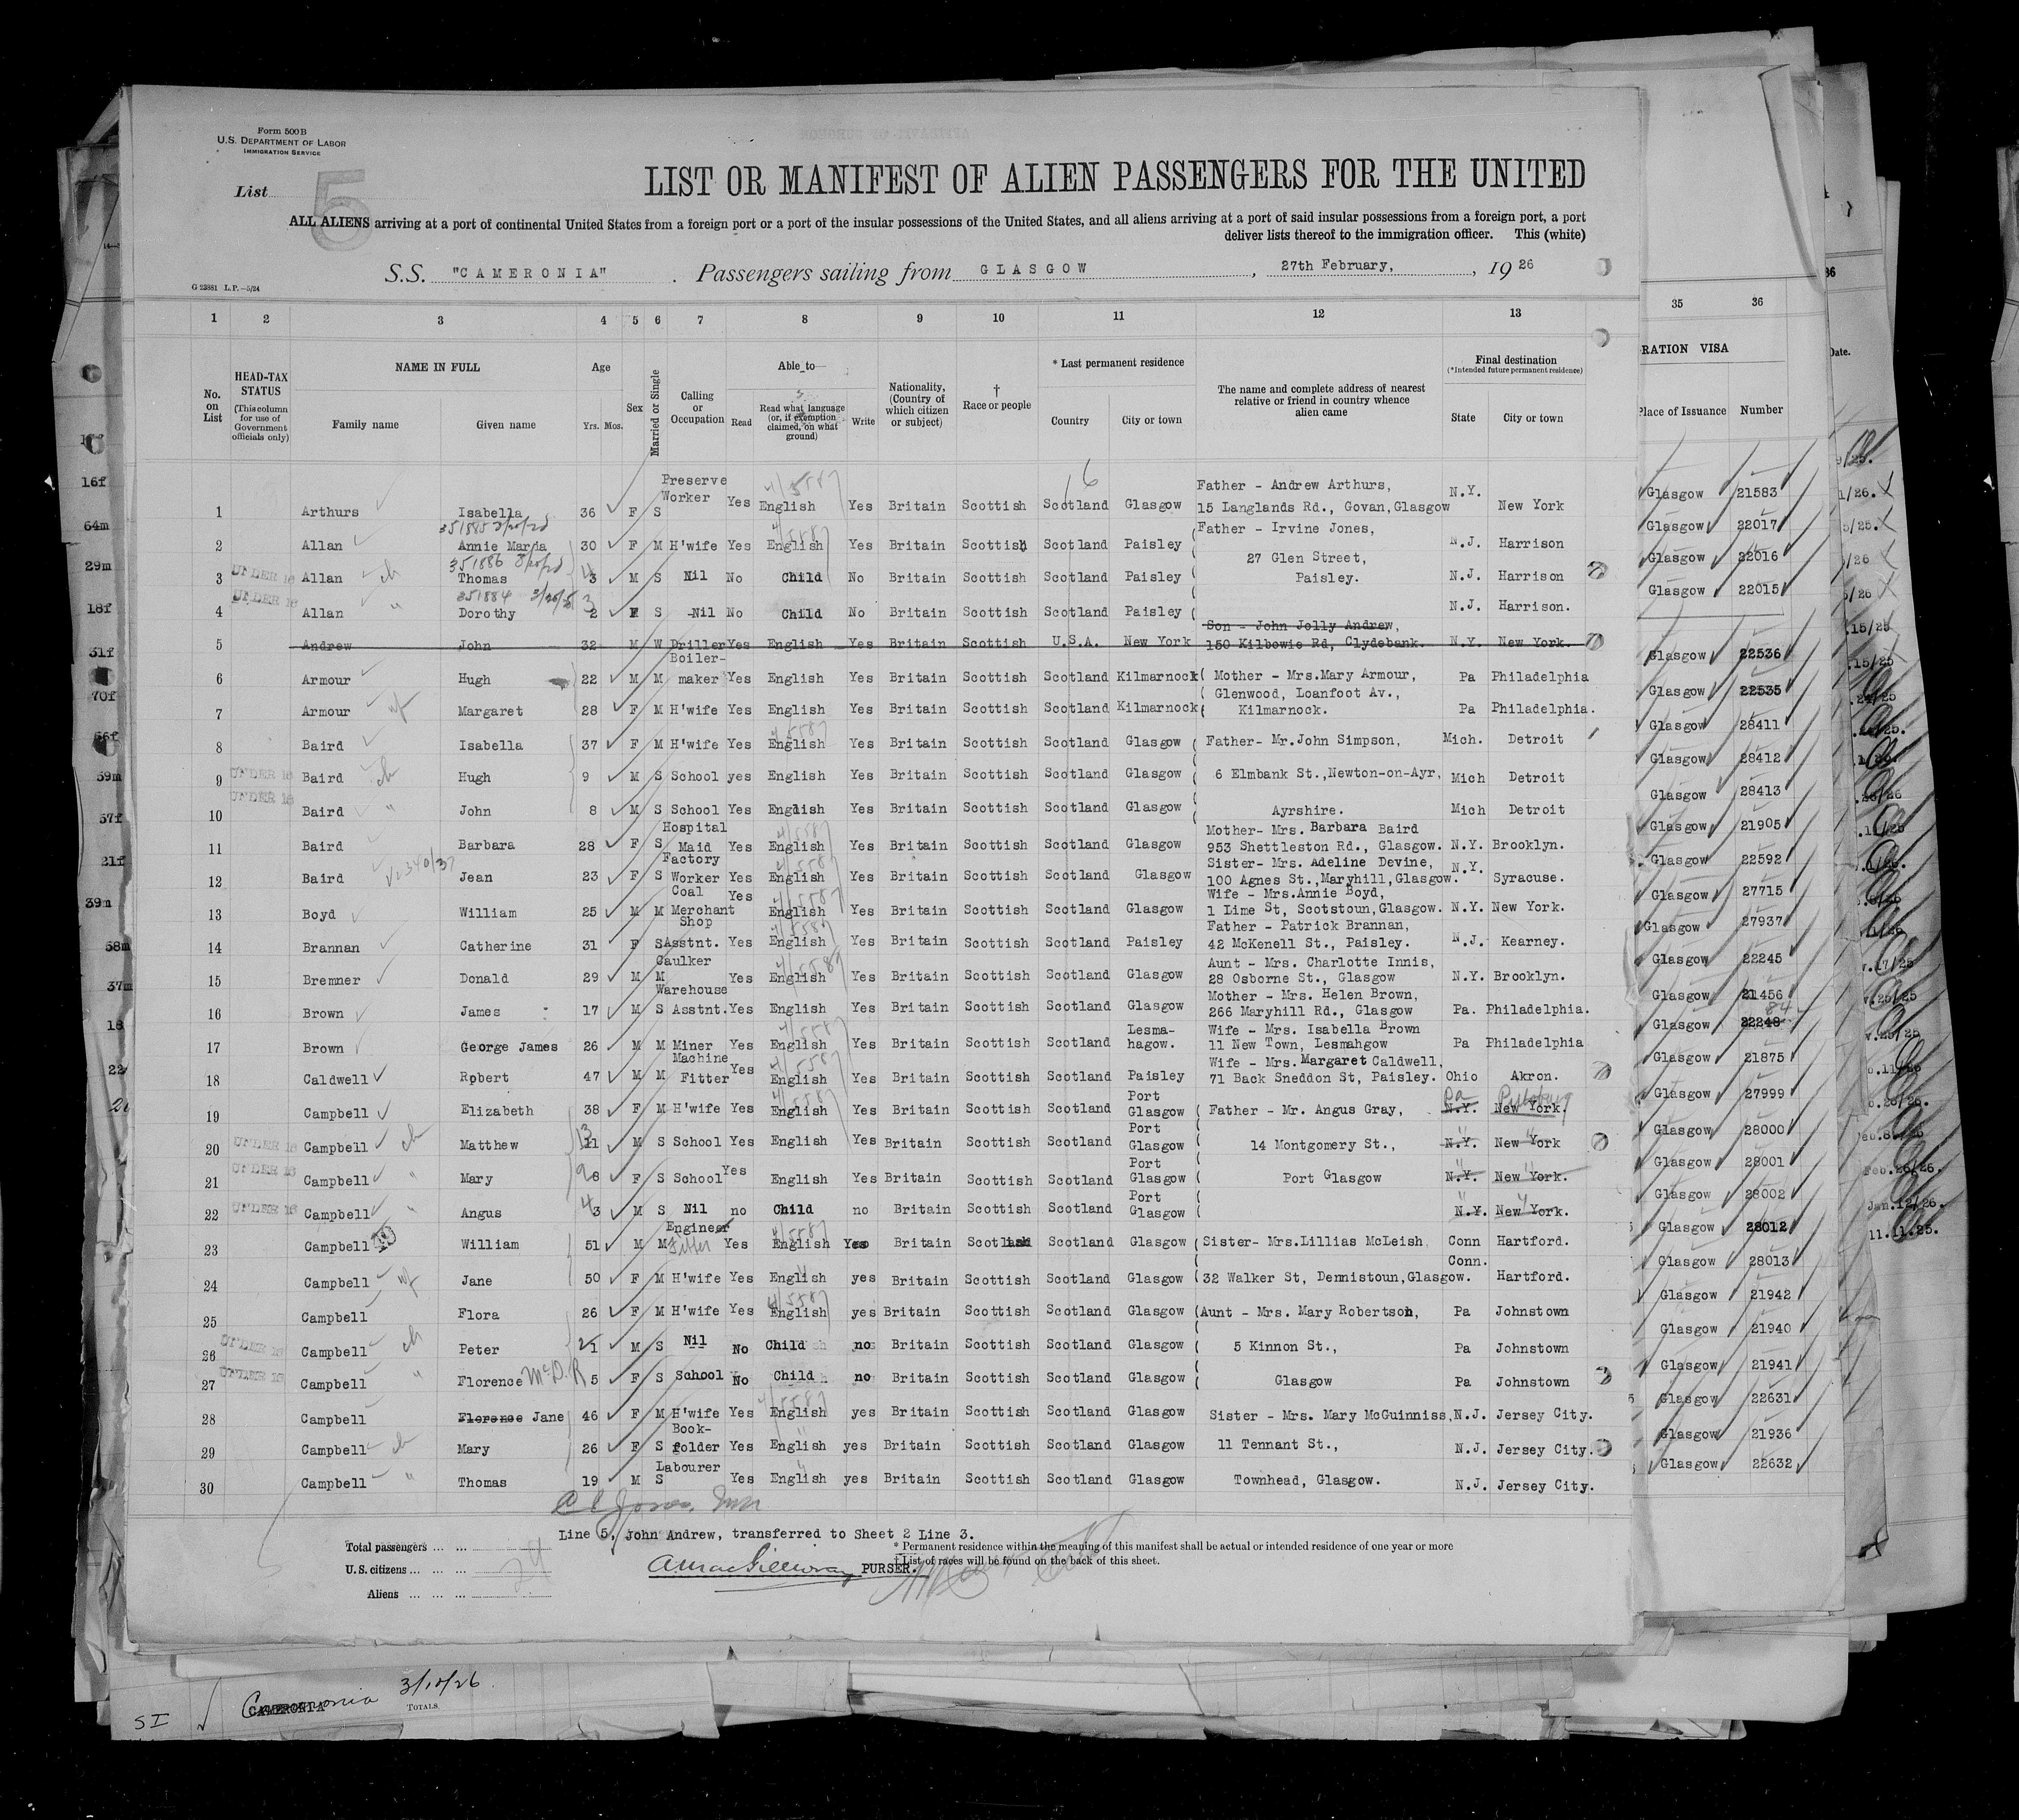 Form 500 B
U.S. DEPARTMENT OF LABOR
IMMIGRATION SERVICE
List 5
LIST OR MANIFEST OF ALIEN PASSENGERS FOR THE UNITED
ALL ALIENS arriving at a port of continental United States from a foreign port or a port of the insular possessions of the United States, and all aliens arriving at a port of said insular possessions from a foreign port, a port
deliver lists thereof to the immigration officer. This (white)
S.S. "CAMERONIA" . Passengers sailing from GLASGOW , 27th February, , 1926
G 23881 L.P.—5/24
1 2 3 4 5 6 7 8 9 10 11 12 13 35 36
No. on List
HEAD-TAX STATUS (This column for use of Government officials only)
NAME IN FULL
Family name Given name
Age Yrs. Mos.
Sex
Married or Single
Calling or Occupation
Able to
Read Read what language (or, if exemption claimed, on what ground) Write
Nationality, (Country of which citizen or subject)
† Race or people
* Last permanent residence
Country City or town
The name and complete address of nearest relative or friend in country whence alien came
Final destination (*Intended future permanent residence)
State City or town
RATION VISA
Place of Issuance Number
Date.
1 Arthurs Isabella 36 F S Preserve Worker Yes English Yes Britain Scottish Scotland Glasgow Father - Andrew Arthurs, 15 Langlands Rd., Govan, Glasgow N.Y. New York Glasgow 21583
2 Allan Annie Maria 30 F M H'wife Yes English Yes Britain Scottish Scotland Paisley Father - Irvine Jones, N.J. Harrison Glasgow 22017
3 UNDER 16 Allan ch Thomas 3 4 M S Nil No Child No Britain Scottish Scotland Paisley 27 Glen Street, Paisley. N.J. Harrison Glasgow 22016
4 UNDER 16 Allan " Dorothy 2 3 F S Nil No Child No Britain Scottish Scotland Paisley N.J. Harrison. Glasgow 22015
5 Andrew John 32 M W Driller Yes English Yes Britain Scottish U.S.A. New York Son - John Jolly Andrew, 150 Kilbowie Rd, Clydebank. N.Y. New York.
6 Armour Hugh 22 M M Boiler-maker Yes English Yes Britain Scottish Scotland Kilmarnock Mother - Mrs.Mary Armour, Pa Philadelphia Glasgow 22536
7 Armour wf Margaret 28 F M H'wife Yes English Yes Britain Scottish Scotland Kilmarnock Glenwood, Loanfoot Av., Kilmarnock. Pa Philadelphia. Glasgow 22535
8 Baird Isabella 37 F M H'wife Yes English Yes Britain Scottish Scotland Glasgow Father- Mr.John Simpson, Mich. Detroit Glasgow 28411
9 UNDER 16 Baird ch Hugh 9 M S School yes English Yes Britain Scottish Scotland Glasgow 6 Elmbank St.,Newton-on-Ayr, Mich Detroit Glasgow 28412
10 UNDER 16 Baird " John 8 M S School Yes English Yes Britain Scottish Scotland Glasgow Ayrshire. Mich Detroit Glasgow 28413
11 Baird Barbara 28 F S Hospital Maid Yes English Yes Britain Scottish Scotland Glasgow Mother- Mrs. Barbara Baird 953 Shettleston Rd., Glasgow. N.Y. Brooklyn. Glasgow 21905
12 Baird Jean 23 F S Factory Worker Yes English Yes Britain Scottish Scotland Glasgow Sister- Mrs. Adeline Devine, 100 Agnes St.,Maryhill,Glasgow. N.Y. Syracuse. Glasgow 22592
13 Boyd William 25 M M Coal Merchant Yes English Yes Britain Scottish Scotland Glasgow Wife - Mrs.Annie Boyd, 1 Lime St, Scotstoun,Glasgow. N.Y. New York. Glasgow 27715
14 Brannan Catherine 31 F S Shop Asstnt. Yes English Yes Britain Scottish Scotland Paisley Father - Patrick Brannan, 42 McKenell St., Paisley. N.J. Kearney. Glasgow 27937
15 Bremner Donald 29 M M Caulker Yes English Yes Britain Scottish Scotland Glasgow Aunt - Mrs. Charlotte Innis, 28 Osborne St., Glasgow N.Y. Brooklyn. Glasgow 22245
16 Brown James 17 M S Warehouse Asstnt. Yes English Yes Britain Scottish Scotland Glasgow Mother - Mrs. Helen Brown, 266 Maryhill Rd., Glasgow Pa. Philadelphia. Glasgow 21456
17 Brown George James 26 M M Miner Yes English Yes Britain Scottish Scotland Lesma-hagow. Wife - Mrs. Isabella Brown 11 New Town, Lesmahgow Pa Philadelphia Glasgow 22248 84
18 Caldwell Robert 47 M M Machine Fitter Yes English Yes Britain Scottish Scotland Paisley Wife - Mrs. Margaret Caldwell, 71 Back Sneddon St, Paisley. Ohio Akron. Glasgow 21875
19 Campbell Elizabeth 38 F M H'wife Yes English Yes Britain Scottish Scotland Port Glasgow Father - Mr. Angus Gray, N.Y. Pa New York. Glasgow 27999
20 UNDER 16 Campbell ch Matthew 11 13 M S School Yes English Yes Britain Scottish Scotland Port Glasgow 14 Montgomery St., N.Y. " New York " Glasgow 28000
21 UNDER 16 Campbell " Mary 8 9 F S School Yes English Yes Britain Scottish Scotland Port Glasgow Port Glasgow N.Y. " New York. " Glasgow 28001
22 UNDER 16 Campbell " Angus 3 4 M S Nil no Child no Britain Scottish Scotland Port Glasgow N.Y. " New York. " Glasgow 28002
23 Campbell William 51 M M Engineer Fitter Yes English Yes Britain Scottish Scotland Glasgow Sister- Mrs.Lillias McLeish Conn Hartford. Glasgow 28012
24 Campbell wf Jane 50 F M H'wife Yes English yes Britain Scottish Scotland Glasgow 32 Walker St, Dennistoun,Glasgow. Conn. Hartford. Glasgow 28013
25 Campbell Flora 26 F M H'wife Yes English yes Britain Scottish Scotland Glasgow Aunt - Mrs. Mary Robertson, Pa Johnstown Glasgow 21942
26 UNDER 16 Campbell ch Peter 1 M S Nil No Child no Britain Scottish Scotland Glasgow 5 Kinnon St., Pa Johnstown Glasgow 21940
27 UNDER 16 Campbell " Florence McD. R 5 F S School No Child no Britain Scottish Scotland Glasgow Glasgow Pa Johnstown Glasgow 21941
28 Campbell Florence Jane 46 F M H'wife Yes English yes Britain Scottish Scotland Glasgow Sister - Mrs. Mary McGuinniss, N.J. Jersey City. Glasgow 22631
29 Campbell ch Mary 26 F S Book-folder Yes English yes Britain Scottish Scotland Glasgow 11 Tennant St., N.J. Jersey City. Glasgow 21936
30 Campbell " Thomas 19 M S Labourer Yes English yes Britain Scottish Scotland Glasgow Townhead, Glasgow. N.J. Jersey City. Glasgow 22632
Line 5, John Andrew, transferred to Sheet 2 Line 3.
Total passengers ... ...
U.S. citizens ... ... ...
Aliens ... ... ...
PURSER.
* Permanent residence within the meaning of this manifest shall be actual or intended residence of one year or more
† List of races will be found on the back of this sheet.
SI Cameronia 3/10/26
CAMERONIA TOTALS.